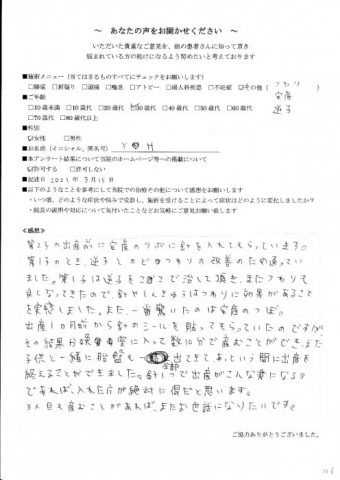 ～ あなたの声をお聞かせください ～
いただいた貴重なご意見を、他の患者さんに知って頂き
悩まれている方の助けになるよう努めたいと考えております
■施術メニュー（当てはまるものすべてにチェックをお願いします）
□腰痛 □肩凝り □頭痛 □喘息 □アトピー □婦人科疾患 □不妊症 ☑その他（ つわり
安産
逆子
■ご年齢
□10歳未満 □10歳代 □20歳代 ☑30歳代 □40歳代 □50歳代 □60歳代
□70歳代 □80歳代以上
■性別
☑女性 □男性
■お名前（イニシャル、匿名可） Y H
■本アンケート結果について当院のホームページ等への掲載について
☑許可する □許可しない
■記述日 2021年3月15日
■以下のようなことを参考にして当院での治療その他について感想をお願いします
・いつ頃、どのような症状や悩みで受診し、施術を受けることによって症状はどのように変化しましたか？
・院長の説明や対応について気付いたことなどお気軽にご意見お願い致します
≪感想≫
第2子の出産前に安産のツボに針を入れてもらっています。
第1子のとき、逆子とのどのつかりの改善のため通ってい
ました。第1子は逆子をこちらで治して頂き、またつわりも
良くなってきたので、針やしんきゅうはつわりに効果があること
を実感しました。また、一番驚いたのは安産のつぼ。
出産1カ月前から針のシールを貼ってもらっていたのですが
その結果分娩室に入って数10分で産むことができ、また
子供と一緒に胎盤も一緒全部出てきて、あっという間に出産を
終えることができました。針1つで出産がこんな楽になるの
であれば、入れた方が絶対に得だと思います。
3人目も産むことがあれば、またお世話になりたいです。
ご協力ありがとうございました。